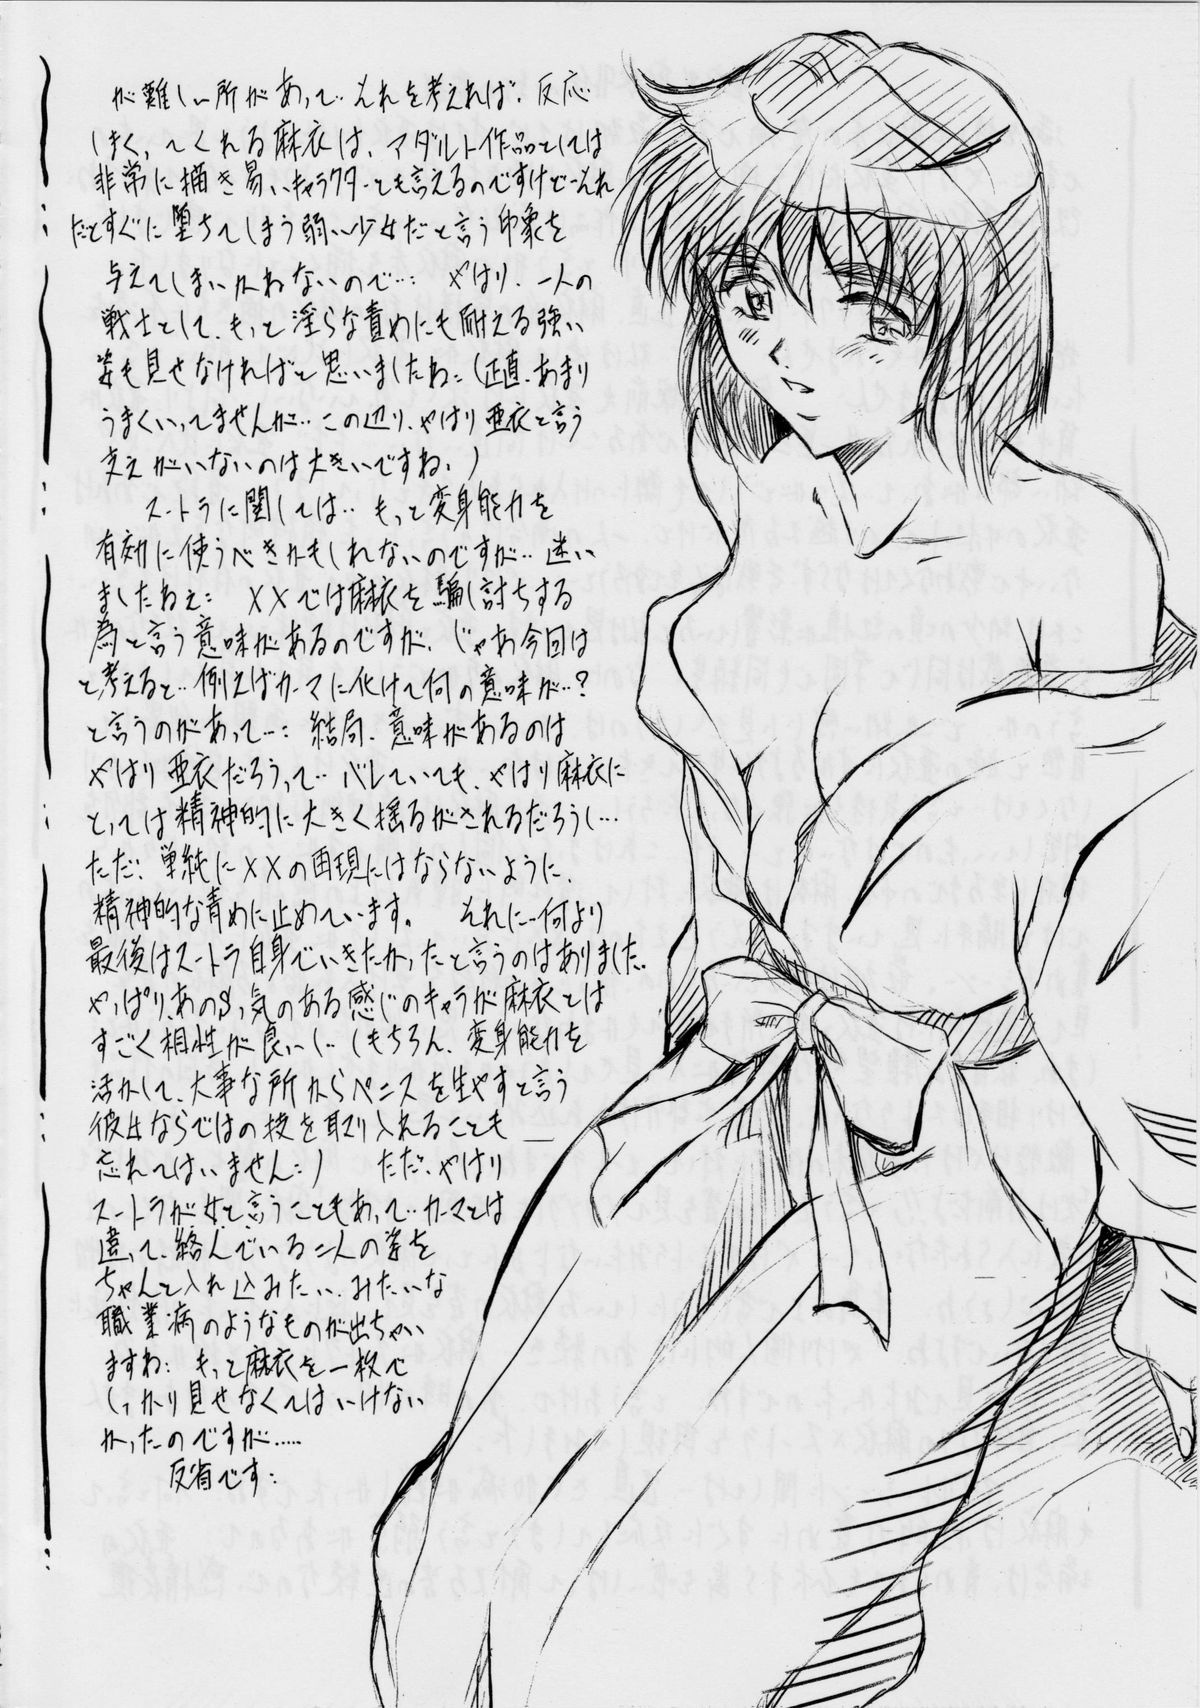 が難しい所があって‥それを考えれば、反応
しまくってくれる麻衣は、アダルト作品としては
非常に描き易いキャラクターとも言えるのですけど…それ
だとすぐに堕ちてしまう弱い少女だと言う印象を
与えてしまいかねないので…: やはり、一人の
戦士として、もっと淫らな責めにも耐える強い
姿も見せなければと思いましたね:(正直、あまり
うまくいってませんが‥この辺り、やはり亜衣と言う
支えがいないのは大きいですね。)
スートラに関しては‥もっと変身能力を
有効に使うべきかもしれないのですが‥迷い
ましたねぇ: XXでは麻衣を騙し討ちする
為と言う意味があるのですが、じゃあ今回は
と考えると‥例えばカーマに化けて何の意味が‥?
と言うのがあって…: 結局、意味があるのは
やはり亜衣だろうって‥バレていても、やはり麻衣に
とっては精神的に大きく揺るがされるだろうし…
ただ、単純にXXの再現にはならないように、
精神的な責めに止めています。 それに…何より
最後はスートラ自身でいきたかったと言うのはありました。
やっぱり、あのSっ気のある感じのキャラが麻衣とは
すごく相性が良いし‥(もちろん、変身能力を
活かして、大事な所からペニスを生やすと言う
彼女ならではの技を取り入れることも
忘れてはいません:) ただ、やはり
スートラが女と言うこともあって‥カーマとは
違って、絡んでいる二人の姿を
ちゃんと入れ込みたい、みたいな
職業病のようなものが出ちゃい
ますね: もっと麻衣を一枚で
しっかり見せなくてはいけない
かったのですが.....
反省です: